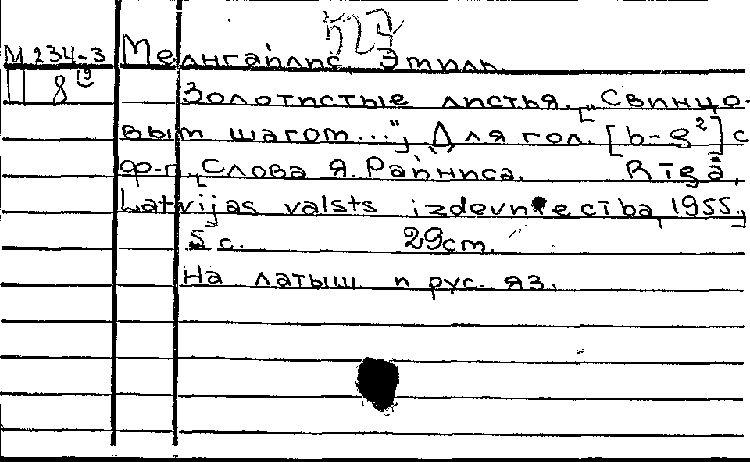 527
М 234-3 Мелнгайлис, Эмиль.
8
Золотистые листья. „Свинцо-
вым шагом..."; Для гол. [b-g²] с
ф-п. Слова Я. Райниса. Rīgā,
Latvijas valsts izdevniecība, 1955.
5 с. 29cm.
На латыш и рус. яз.